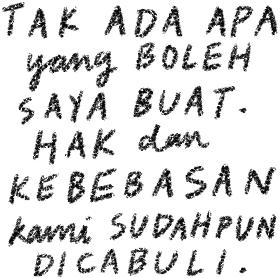 TAK ADA APA
yang BOLEH
SAYA BUAT.
HAK dan
KEBEBASAN
kami SUDAHPUN
DICABULI.